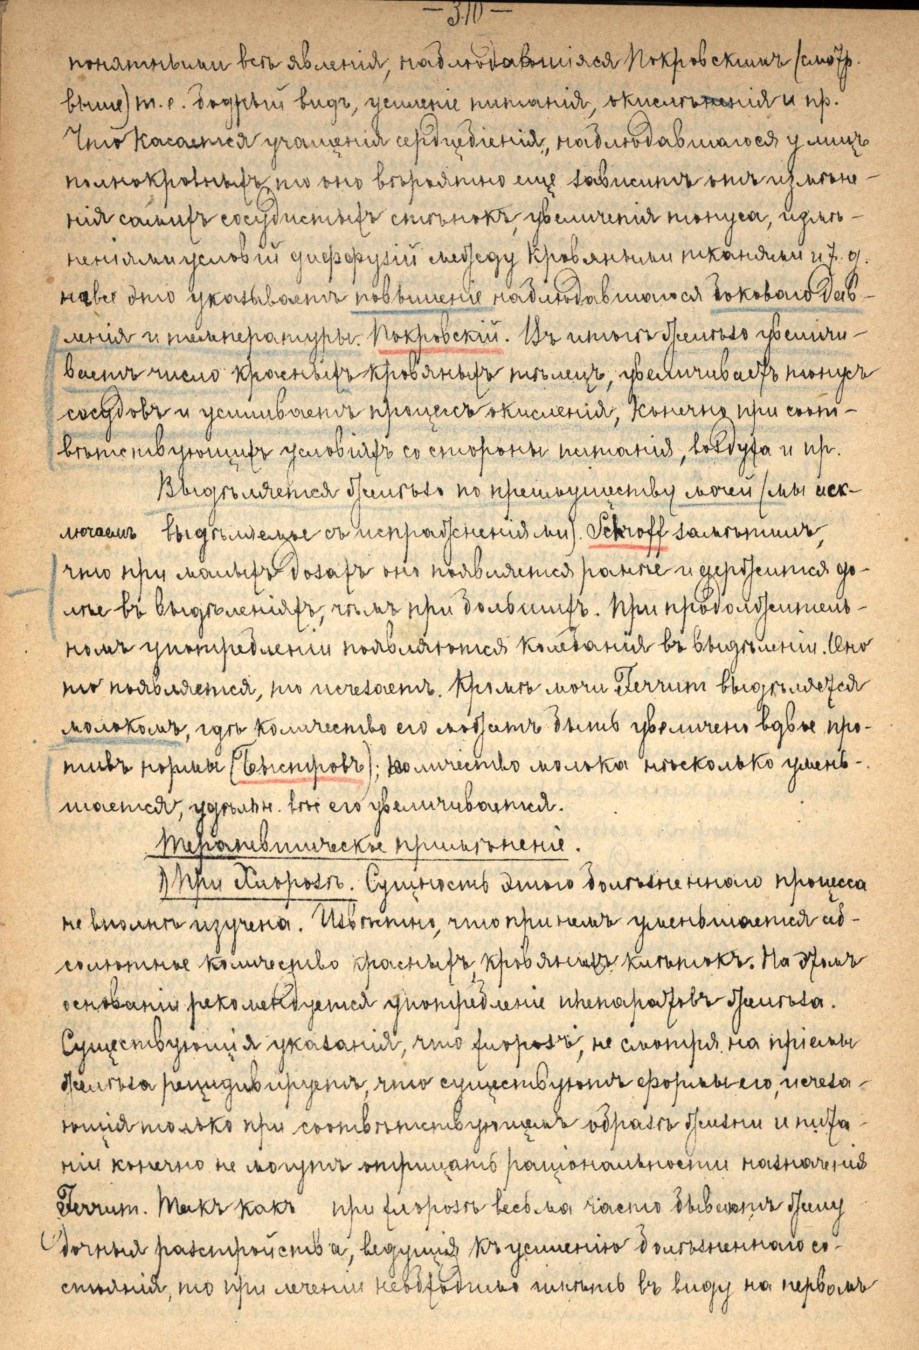 — 310 —
понятными всѣ явленія, наблюдавшіяся Покровскимъ (смотр.
выше) т. е. бодрый видъ, усиленіе питанія, окисленія и пр.
Что касается учащенія сердцебіенія, наблюдавшагося у лицъ
полнокровныхъ, то оно вѣроятно еще зависитъ отъ измѣне-
нія самихъ сосудистыхъ стѣнокъ, увеличенія тонуса, измѣ-
неніями условій диффузій между кровяными тканями и т. д.
на все это указываетъ повышеніе наблюдавшагося боковаго дав-
ленія и температуры. Покровскій. Въ итогѣ желѣзо увеличи-
ваетъ число красныхъ кровяныхъ тѣлецъ, увеличиваетъ тонусъ
сосудовъ и усиливаетъ процессъ окисленія, конечно при соот-
вѣтствующихъ условіяхъ со стороны питанія, воздуха и пр.
Выдѣляется желѣзо по преимуществу мочей (мы иск-
лючаемъ выдѣляемое съ испражненіями). Schroff замѣтилъ,
что при малыхъ дозахъ оно появляется раньше и держится до-
лѣе въ выдѣленіяхъ, чѣмъ при большихъ. При продолжитель-
номъ употребленіи появляются колебанія въ выдѣленіи. Оно
то появляется, то исчезаетъ. Кромѣ мочи Ferrum выдѣляется
молокомъ, гдѣ количество его можетъ быть увеличено вдвое про-
тивъ нормы (Быстровъ); количество молока нѣсколько умень-
шается, удѣльн. вѣс его увеличивается.
Терапевтическое примѣненіе.
1) При Хлорозѣ. Сущность этого болѣзненнаго процесса
не вполнѣ изучена. Извѣстно, что при немъ уменьшается аб-
солютное количество красныхъ кровяныхъ клѣтокъ. На этомъ
основаніи рекомендуется употребленіе препаратовъ желѣза.
Существующія указанія, что хлорозъ, не смотря на пріемы
желѣза рецидивируетъ, что существуютъ формы его, исчеза-
ющія только при соотвѣтствующемъ образѣ жизни и пита-
ніи конечно не могутъ отрицать раціональности назначенія
Ferrum. Такъ какъ при хлорозѣ весьма часто бываютъ желу
дочныя разстройства, ведущія къ усиленію болѣзненнаго со-
стоянія, то при леченіи необходимо имѣть въ виду на первомъ